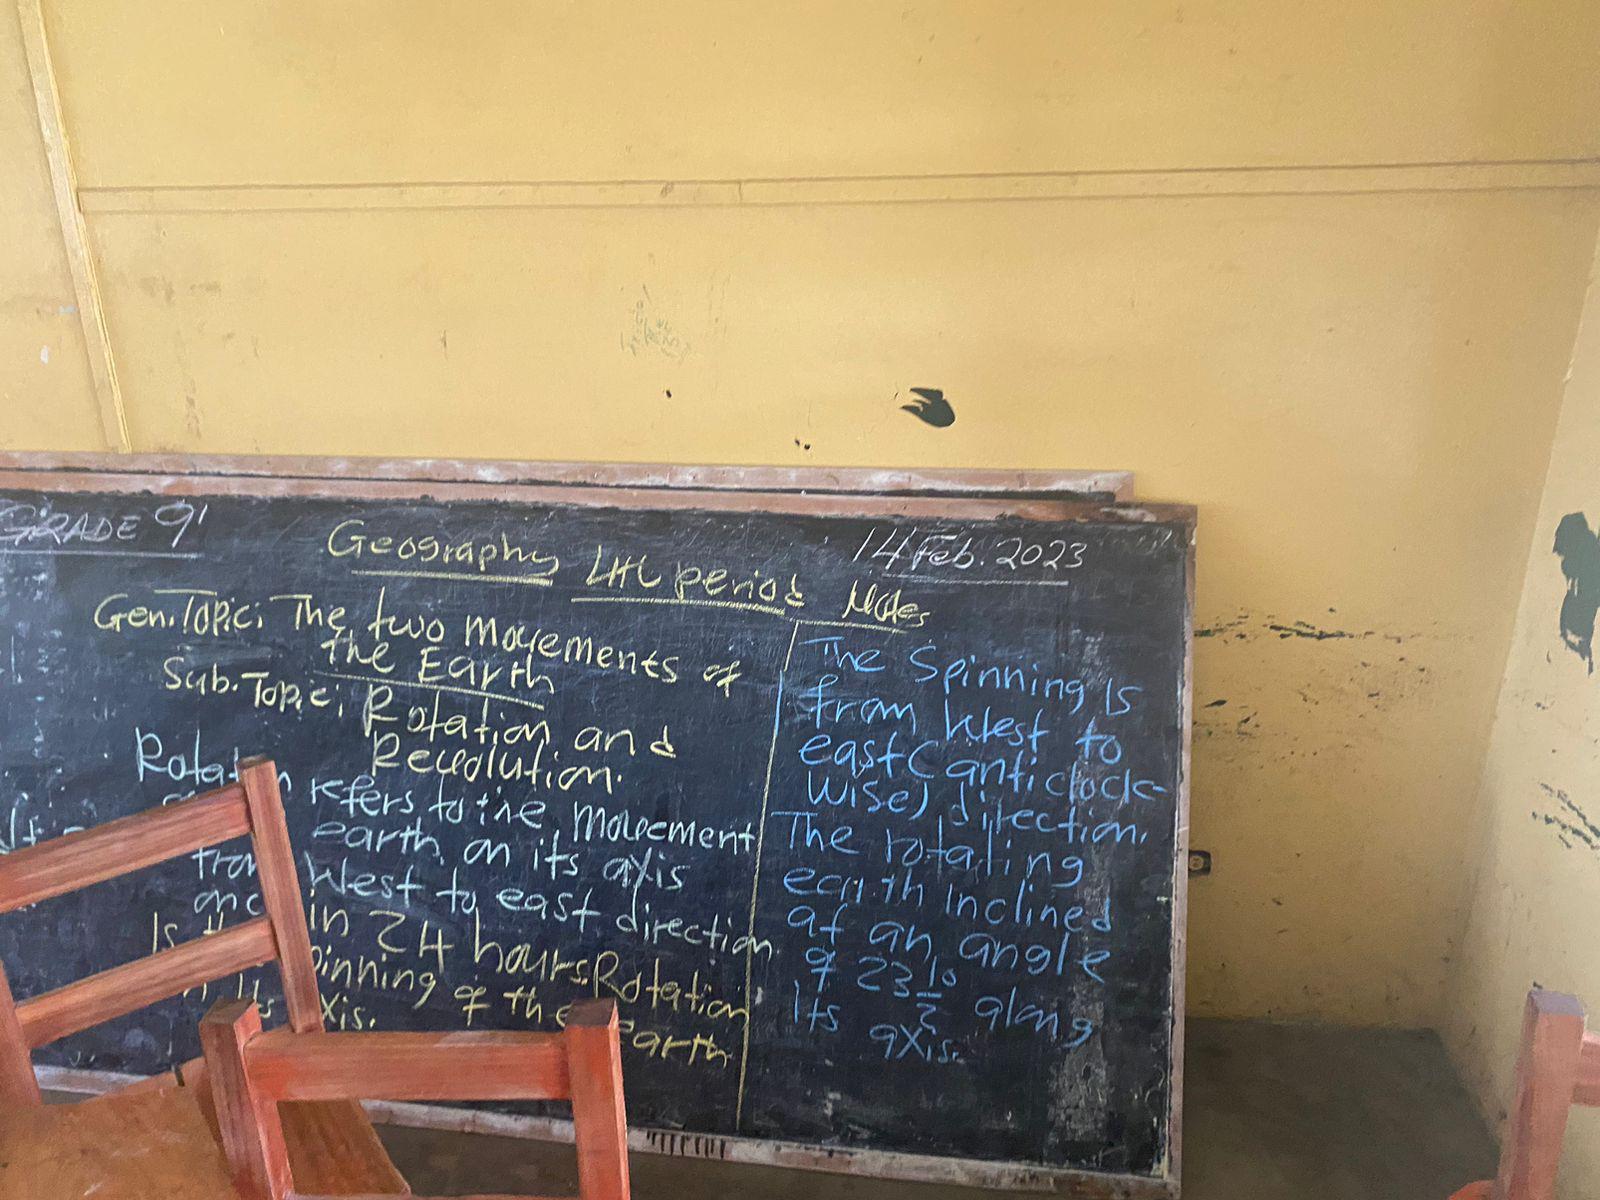 GRADE 9'
14 Feb. 2023
Geography 4th period Notes
Gen. Topic: The two movements of
the Earth
Sub. Topic: Rotation and
Revolution.
refers to the movement
earth on its axis
from West to east direction
and in 24 hours. Rotation
Is the spinning of the Earth
axis.
The Spinning is
from West to
east (anticlock-
wise) direction.
The rotating
earth inclined
at an angle
of 23 1/2° along
Its axis.